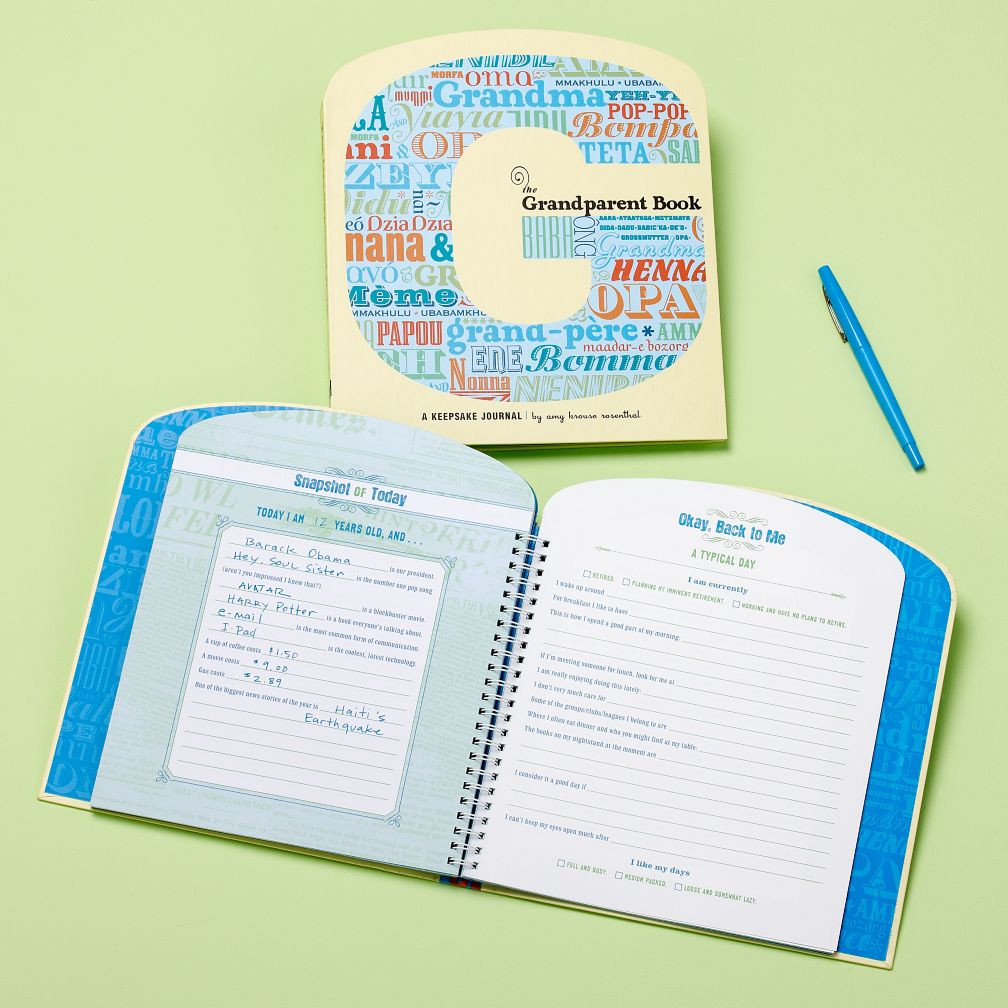 MORFA
oma
MMAKHULU • UBABAM
mummi
Grandma
YEH-YE
Yiayia
POP-POP
AND
Bompa
MORFA
ani & OP
TETA
SAF
ZEYE
Didu
nai
the
Grandparent Book
eó Dzia Dzia
BABA
ONG
AANA-ATAATAGA-METZMAYR
DIDA-DADU-BABIC'KA-DE'D-
GROSSMUTTER OPA-
nana &
Grandma
avó & GR
HENNA
Mèmes
OPA
MMAKHULU • UBABAMKH
PAPOU
grand-père * AMM
maadar-e bozorg
ENE
Bomma
AND
Nonna
NENIBE
A KEEPSAKE JOURNAL | by amy krouse rosenthal
Snapshot OF Today
TODAY I AM 12 YEARS OLD, AND...
Barack Obama is our president.
Hey, Soul Sister is the number one pop song
(aren't you impressed I knew that?).
AVATAR is a blockbuster movie.
HARRY Potter is a book everyone's talking about.
e-mail is the most common form of communication.
I-Pad is the coolest, latest technology.
A cup of coffee costs $1.50
A movie costs $9.00
Gas costs $2.89
One of the biggest news stories of the year is Haiti's
Earthquake
GREAT CROWDS CHEER THEM
Okay, Back to Me
A TYPICAL DAY
I am currently
RETIRED. PLANNING MY IMMINENT RETIREMENT. WORKING AND HAVE NO PLANS TO RETIRE.
I wake up around
For breakfast I like to have
This is how I spend a good part of my morning:
If I'm meeting someone for lunch, look for me at
I am really enjoying doing this lately:
I don't very much care for
Some of the groups/clubs/leagues I belong to are
Where I often eat dinner and who you might find at my table:
The books on my nightstand at the moment are
I consider it a good day if
I can't keep my eyes open much after
I like my days
FULL AND BUSY. MEDIUM PACKED. LOOSE AND SOMEWHAT LAZY.